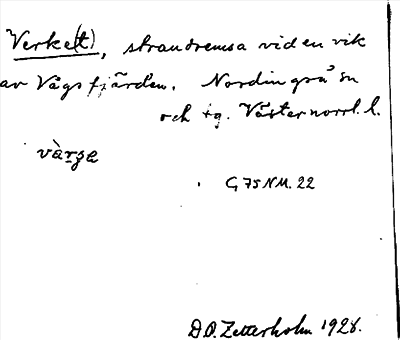 Verke(t), strandremsa vid en vik
av Vågsfjärden. Nordingrå sn
och tg. Västernorrl. l.
värge
G 75 NM. 22
D.O. Zetterholm 1928.